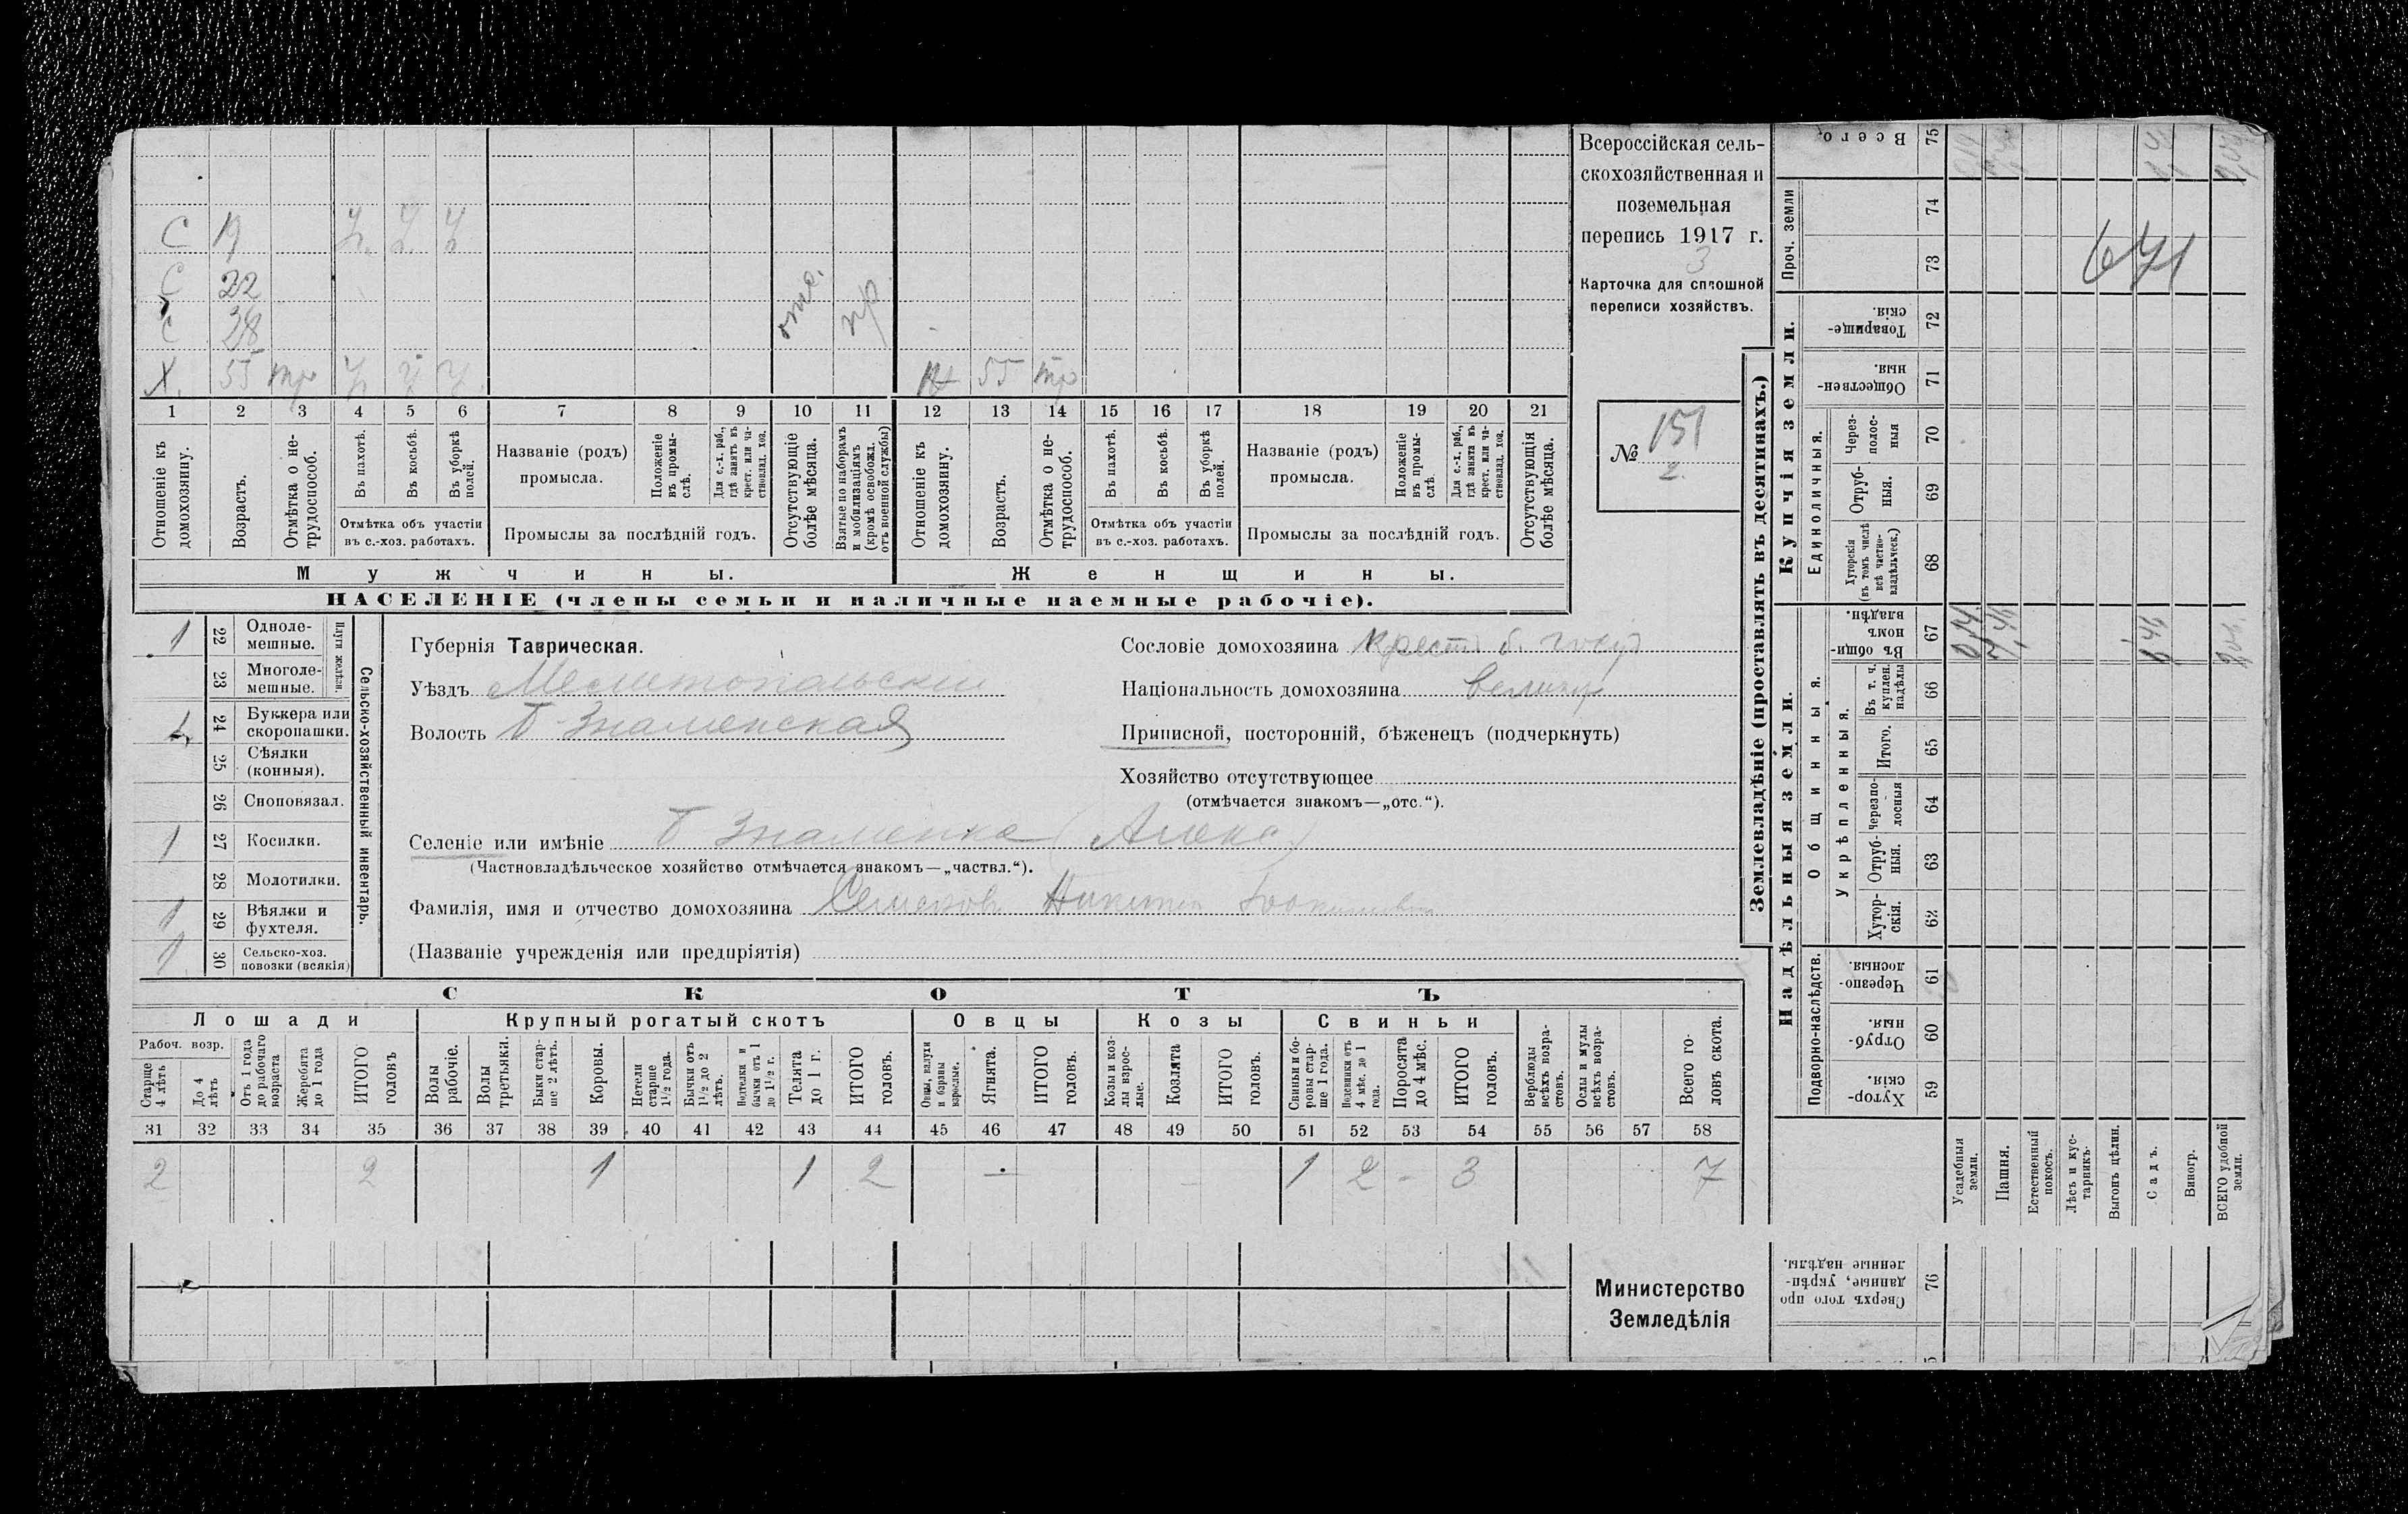 С 19 ч. ч. ч
С 22
с 38 отс. пр
Х. 55 тр ч ч ч. Ж 55 тр
1 2 3 4 5 6 7 8 9 10 11 12 13 14 15 16 17 18 19 20 21
Отношеніе къ домохозяину.
Возрастъ.
Отмѣтка о не-трудоспособ.
Въ пахотѣ.
Въ косьбѣ.
Въ уборкѣ полей.
Отмѣтка объ участіи
въ с.-хоз. работахъ.
Названіе (родъ)
промысла.
Положеніе въ промы-слѣ.
Для с.-х. раб., гдѣ занятъ въ крест. или ча-стновлад. хоз.
Промыслы за послѣдній годъ.
Отсутствующіе болѣе мѣсяца.
Взятые по наборамъ и мобилизаціямъ (кромѣ освобожд. отъ военной службы)
Отношеніе къ домохозяину.
Возрастъ.
Отмѣтка о не-трудоспособ.
Въ пахотѣ.
Въ косьбѣ.
Въ уборкѣ полей.
Отмѣтка объ участіи
въ с.-хоз. работахъ.
Названіе (родъ)
промысла.
Положеніе въ промы-слѣ.
Для с.-х. раб., гдѣ занята въ крест. или ча-стновлад. хоз.
Промыслы за послѣдній годъ.
Отсутствующія болѣе мѣсяца.
Мужчины.
Женщины.
НАСЕЛЕНІЕ (члены семьи и наличные наемные рабочіе).
Всероссійская сель-
скохозяйственная и
поземельная
перепись 1917 г.
3
Карточка для сплошной
переписи хозяйствъ.
№ 151
2.
1 22 Одноле-мешные.
23 Многоле-мешные.
Плуги желѣзн.
24 Буккера или скоропашки.
25 Сѣялки (конныя).
26 Сноповязал.
1 27 Косилки.
28 Молотилки.
1 29 Вѣялки и фухтеля.
1 30 Сельско-хоз. повозки (всякія)
Сельско-хозяйственный инвентарь.
Губернія Таврическая.
Уѣздъ Мелитопольскій
Волость Б-Знаменская
Сословіе домохозяина крест б. госуд
Національность домохозяина великор
Приписной, посторонній, бѣженецъ (подчеркнуть)
Хозяйство отсутствующее
(отмѣчается знакомъ—„отс.“).
Селеніе или имѣніе Б Знаменка (Алекс)
(Частновладѣльческое хозяйство отмѣчается знакомъ—„частвл.“).
Фамилія, имя и отчество домохозяина Никита
(Названіе учрежденія или предпріятія)
СКОТЪ
Лошади
Крупный рогатый скотъ
Овцы
Козы
Свиньи
Рабоч. возр.
Старше 4 лѣтъ
До 4 лѣтъ
Отъ 1 года до рабочаго возраста
Жеребята до 1 года
ИТОГО головъ
Волы рабочіе.
Волы третьяки.
Быки стар-ше 2 лѣтъ.
Коровы.
Нетели старше 1½ года.
Бычки отъ 1½ до 2 лѣтъ.
Подтелки и бычки отъ 1 до 1½ г.
Телята до 1 г.
ИТОГО головъ.
Овцы, валухи и бараны взрослые.
Ягнята.
ИТОГО головъ.
Козы и коз-лы взрос-лые.
Козлята
ИТОГО головъ.
Свиньи и бо-ровы стар-ше 1 года.
Подсвинки отъ 4 мѣс. до 1 года.
Поросята до 4 мѣс.
ИТОГО головъ.
Верблюды всѣхъ возра-стовъ.
Ослы и мулы всѣхъ возра-стовъ.
Всего го-ловъ скота.
31 32 33 34 35 36 37 38 39 40 41 42 43 44 45 46 47 48 49 50 51 52 53 54 55 56 57 58
2 2 1 1 2 — 1 2 - 3 7
Министерство
Земледѣлія
Землевладѣніе (проставлять въ десятинахъ.)
Купчія земли.
Надѣльныя земли.
Всего. 75
Проч. земли 74 73
671
Товарище-скія. 72
Обществен-ныя. 71
Единоличныя.
Через-полос-ныя 70
Отруб-ныя. 69
Хуторскія (въ томъ числѣ всѣ частно-владѣльческ.) 68
Общинныя.
Въ общи-номъ владѣн. 67
Укрѣпленныя.
Въ т. ч. куплен. надѣлы 66
Итого. 65
Черезпо-лосныя 64
Отруб-ныя. 63
Хутор-скія. 62
Подворно-наслѣдств.
Черезпо-лосныя. 61
Отруб-ныя. 60
Хутор-скія. 59
Усадебныя земли.
Пашня.
Естественный покосъ.
Лѣсъ и кус-тарникъ.
Выгонъ цѣлин.
Садъ.
Виногр.
ВСЕГО удобной земли.
Сверхъ того про данные, укрѣп-ленные надѣлы. 76